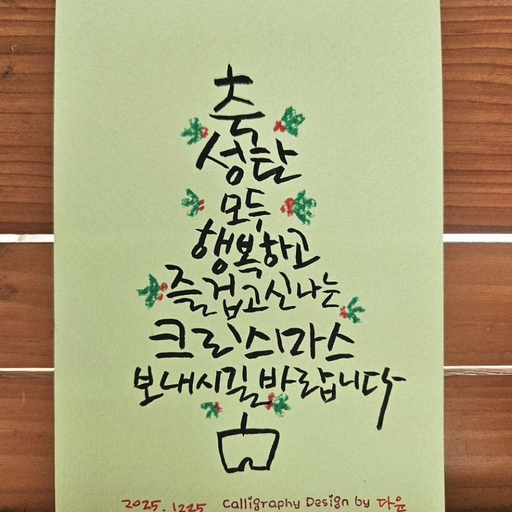 축
성탄
모두
행복하고
즐겁고신나는
크리스마스
보내시길 바랍니다
2025.1225 Calligraphy Design by 다운